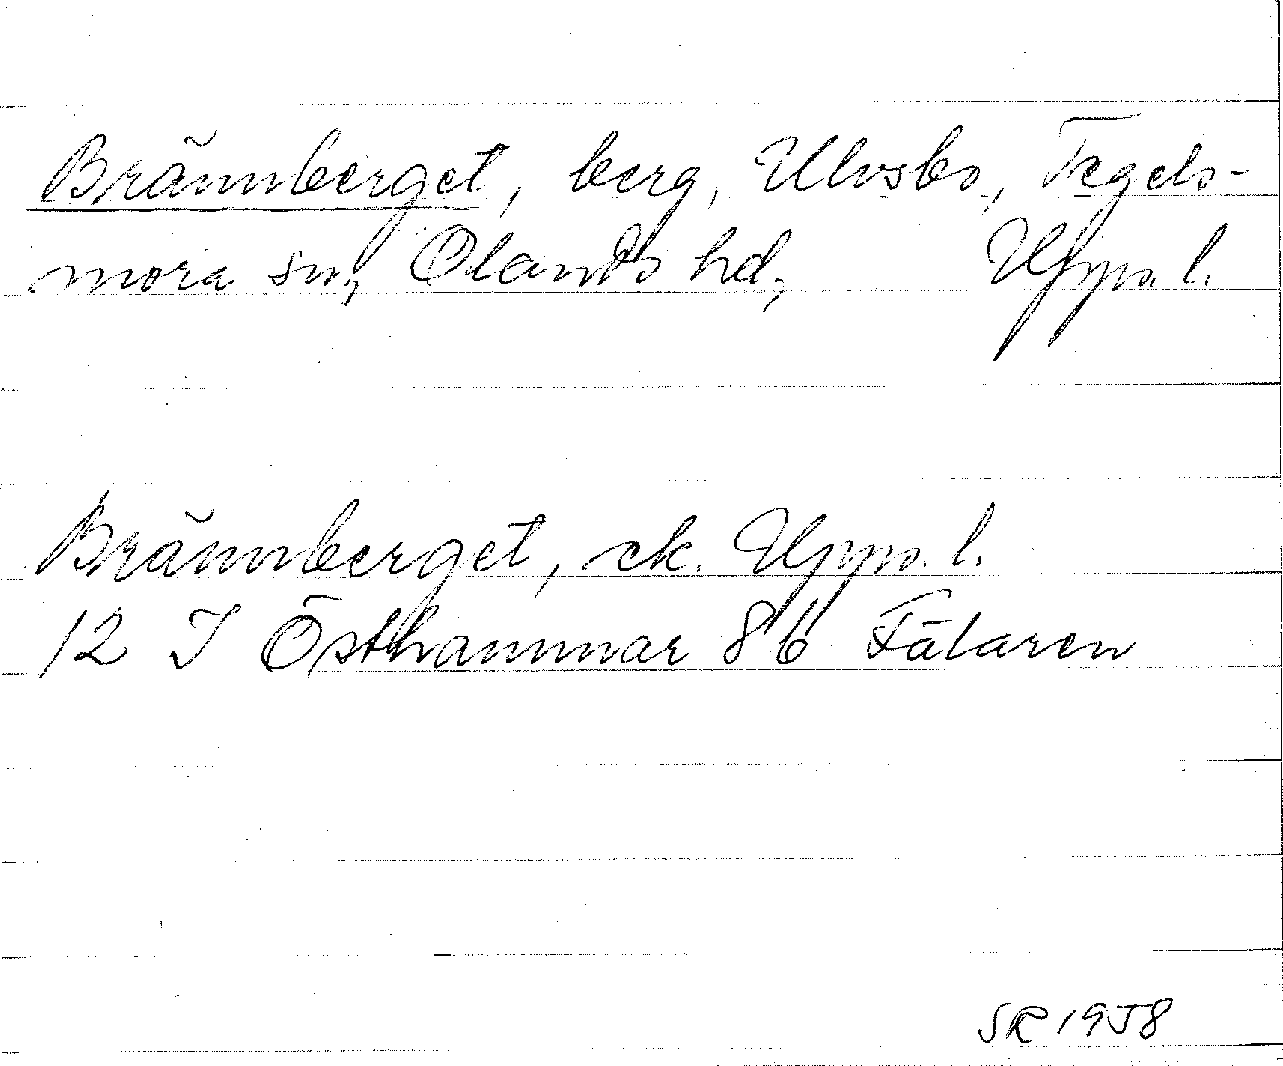 Brännberget, berg, Ulvsbo, Tegels-
mora sn, Olands hd, Upps. l.
Brännberget, ek. Upps. l.
12 I Östhammar 86 Fälaren
SR 1958